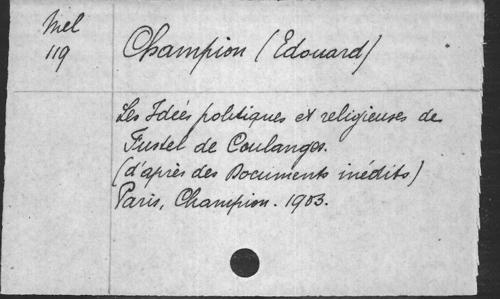 Mel
119
Champion (Edouard)
Les Idées politiques et religieuses de
Fustel de Coulanges.
(d'après des Documents inédits)
Paris, Champion. 1903.